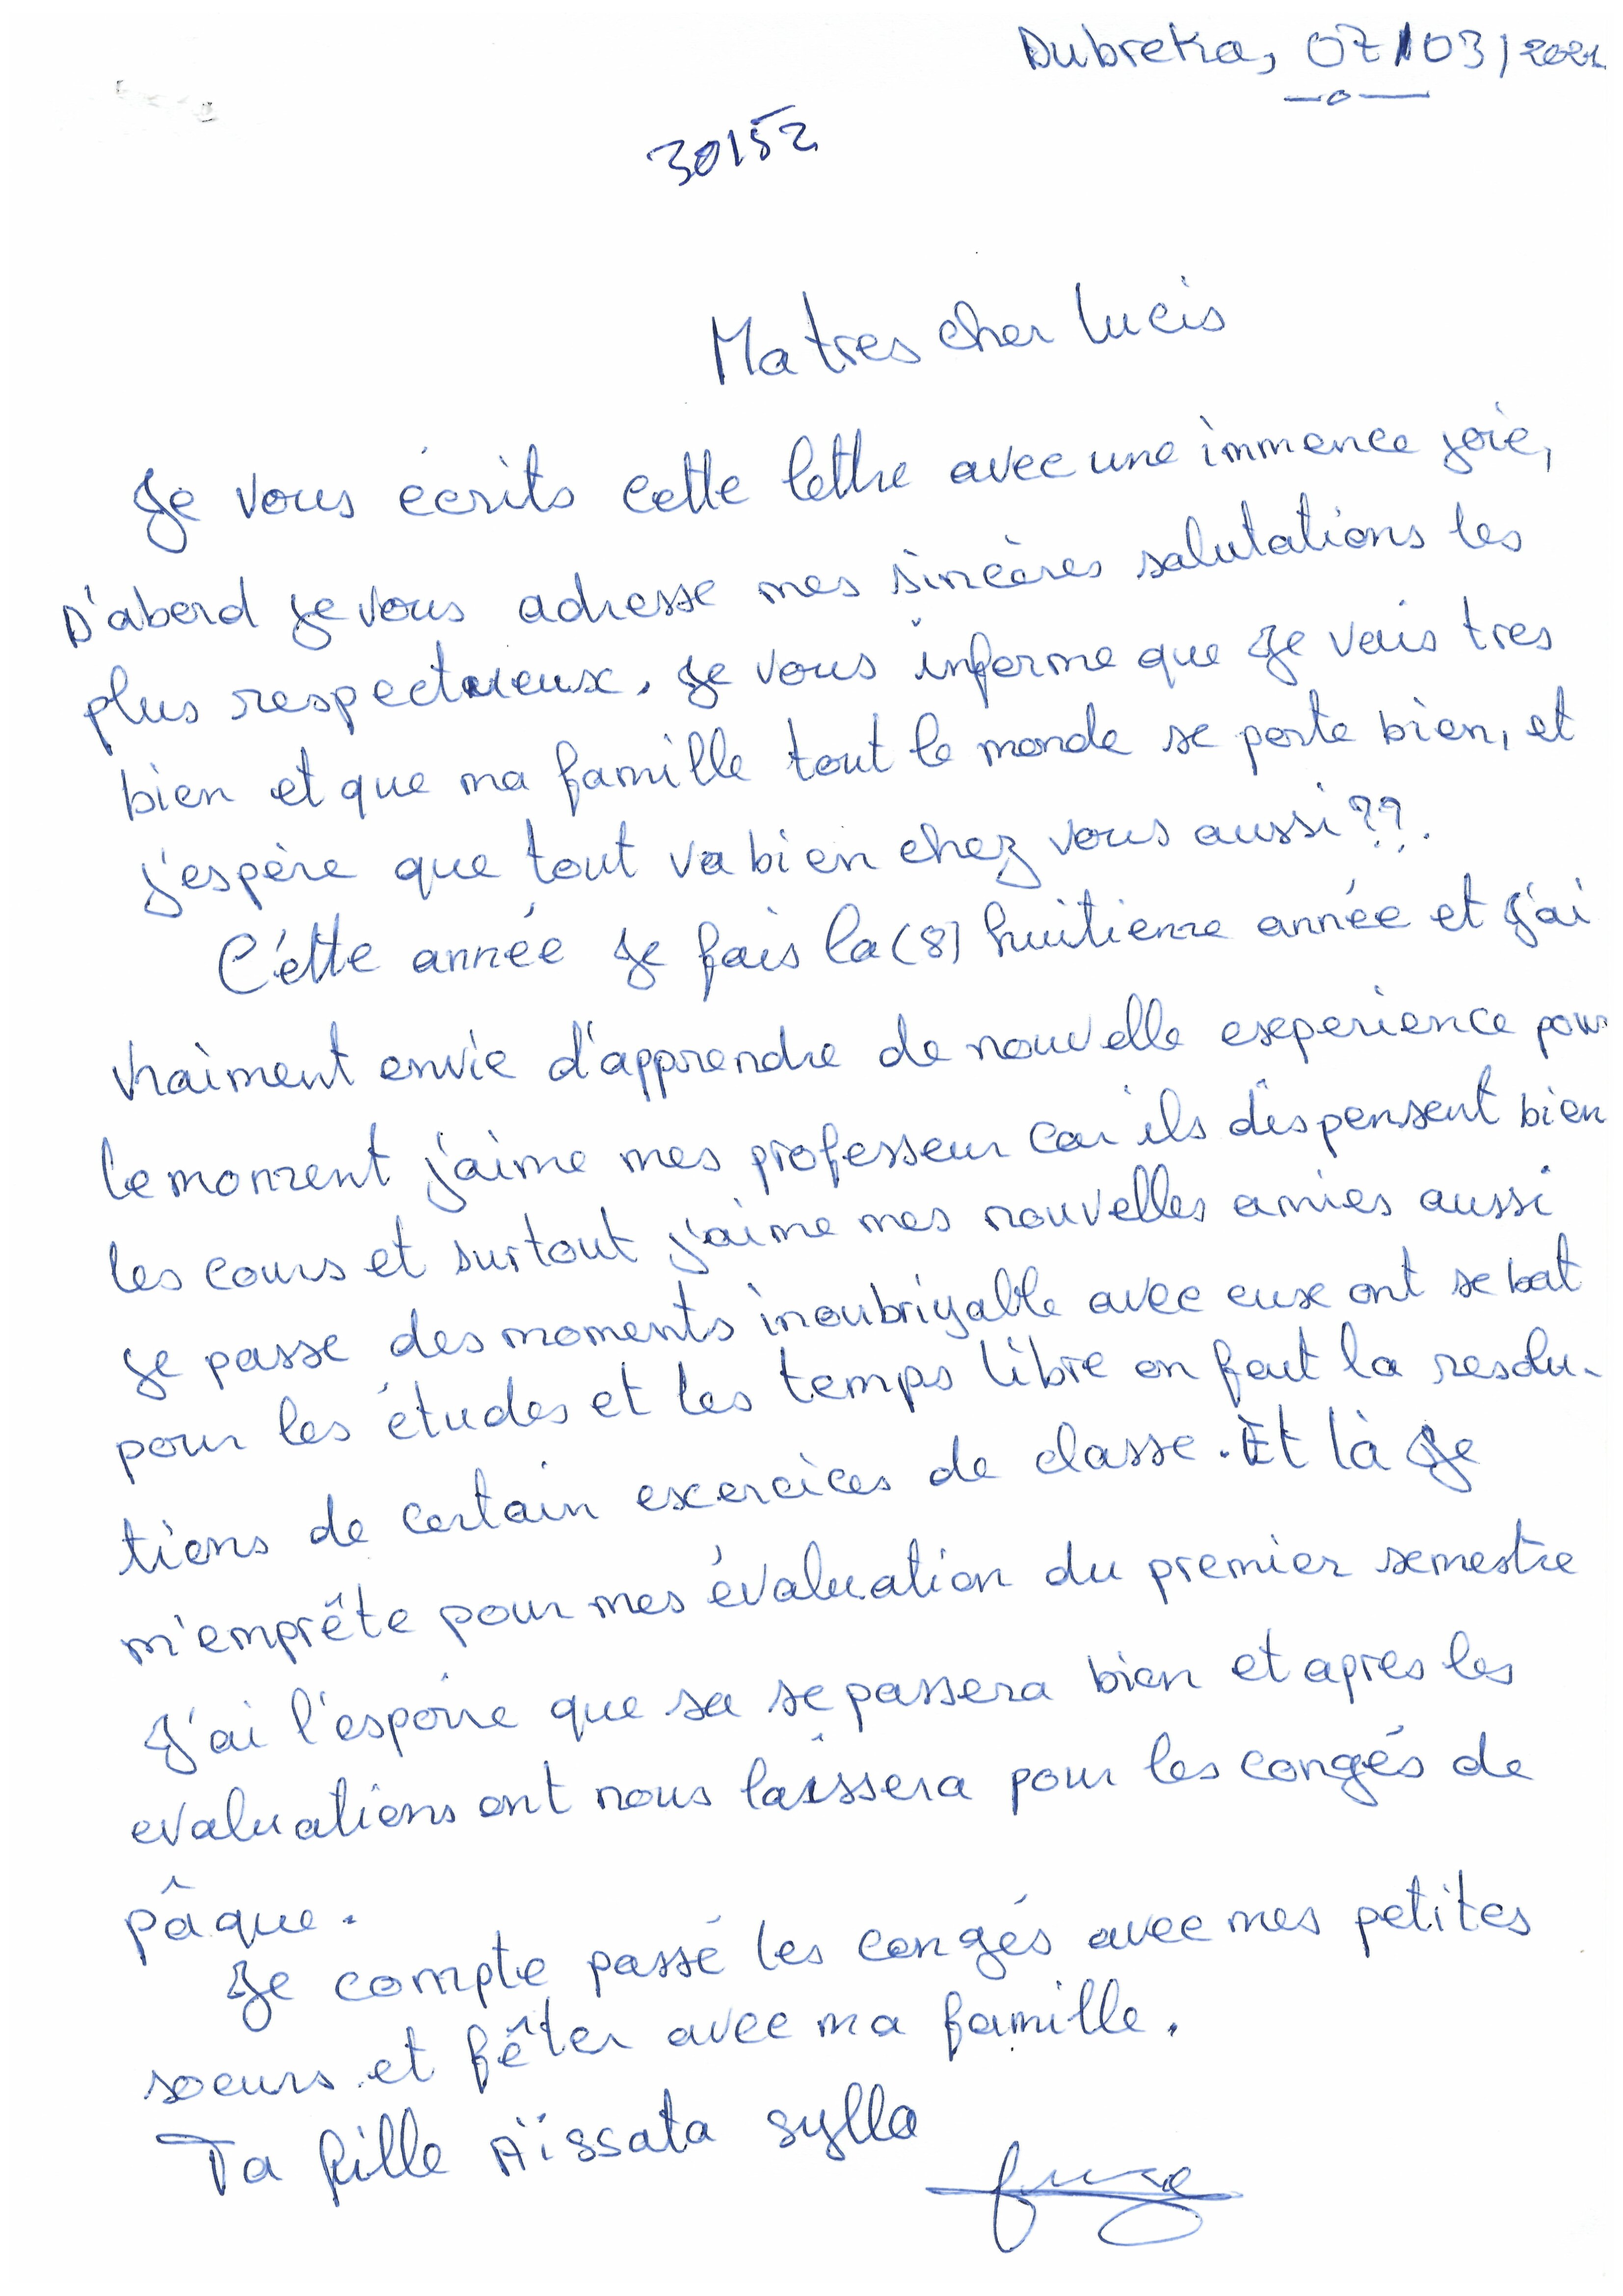 Dubreka, 07/03/2021
30152
Ma tres cher lucis
Je vous écrits cette lettre avec une immence joie,
D'abord je vous adresse mes sincères salutations les
plus respectueux. Je vous informe que Je vais tres
bien et que ma famille tout le monde se porte bien, et
j'espère que tout va bien chez vous aussi ??.
Cétte année Je fais la (8) huitieme année et j'ai
vraiment envie d'apprendre de nouvelle experience pour
le moment j'aime mes professeur car ils dispensent bien
les cours et surtout j'aime mes nouvelles amies aussi
je passe des moments inoubriyable avec eux ont se bat
pour les études et les temps libre on fait la resolu-
tions de certain exercices de classe. Et là Je
m'emprête pour mes évaluation du premier semestre
J'ai l'espoire que sa se passera bien et apres les
evaluations ont nous laissera pour les congés de
pâque.
Je compte passé les congés avec mes petites
soeurs et fêter avec ma famille.
Ta fille Aïssata sylla